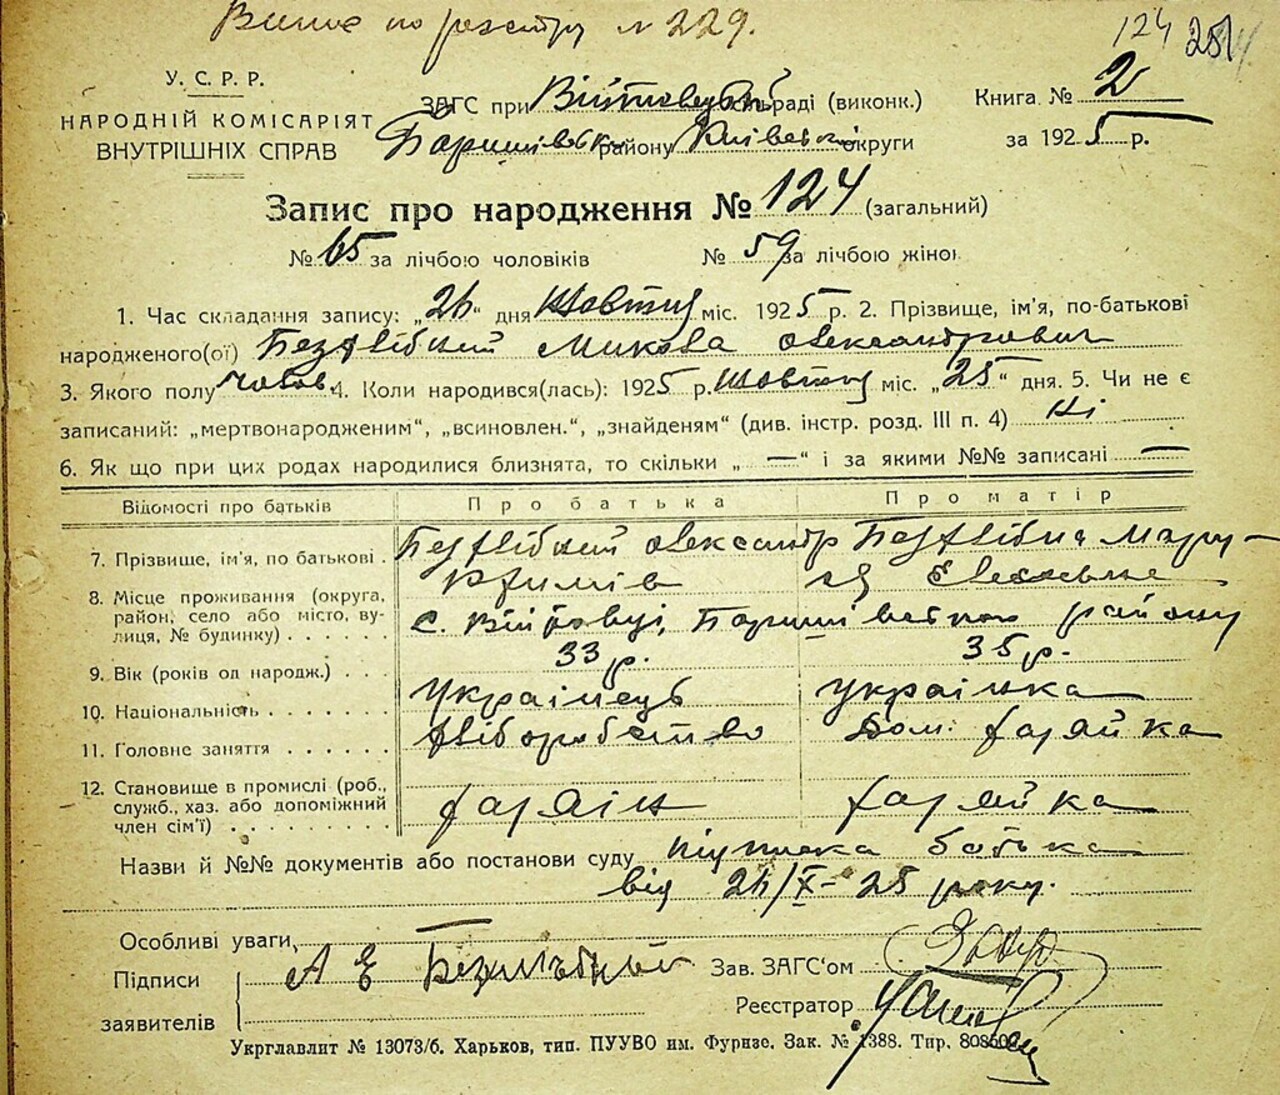 по реєстру № 229.
124 251
У. С. Р. Р.
НАРОДНІЙ КОМІСАРІЯТ
ВНУТРІШНІХ СПРАВ
ЗАГС при Війтовецькій сільраді (виконк.)
Баришівськ. району Київської округи
Книга № 2
за 1925 р.
Запис про народження № 124 (загальний)
№ 65 за лічбою чоловіків № 59 за лічбою жінок
1. Час складання запису: „ “ дня Жовтня міс. 1925 р. 2. Прізвище, ім'я, по-батькові
народженого(ої) Микола Олександрович
3. Якого полу чолов. 4. Коли народився(лась): 1925 р. Жовтня міс. „25“ дня. 5. Чи не є
записаний: „мертвонародженим“, „всиновлен.“, „знайденям“ (див. інстр. розд. III п. 4) Ні
6. Як що при цих родах народилися близнята, то скільки „—“ і за якими №№ записані —
Відомості про батьків Про батька Про матір
7. Прізвище, ім'я, по батькові . Олександр
8. Місце проживання (округа, район, село або місто, вулиця, № будинку) . . . . . . с. Війтовці, Баришівського району
9. Вік (років од народж.) . . . 33 р. 35 р.
10. Національність . . . . . . . Українець українка
11. Головне заняття . . . . . . хліборобство Дом. хазяйка
12. Становище в промислі (роб., служб., хаз. або допоміжний член сім'ї) . . . . . . . . . хазяїн хазяйка
Назви й №№ документів або постанови суду підписка батька
від /X–25 року.
Особливі уваги,
Підписи А Е
заявителів
Зав. ЗАГС'ом
Реєстратор
Укрглавлит № 13073/6. Харьков, тип. ПУУВО им. Фрунзе. Зак. № 1388. Тир.